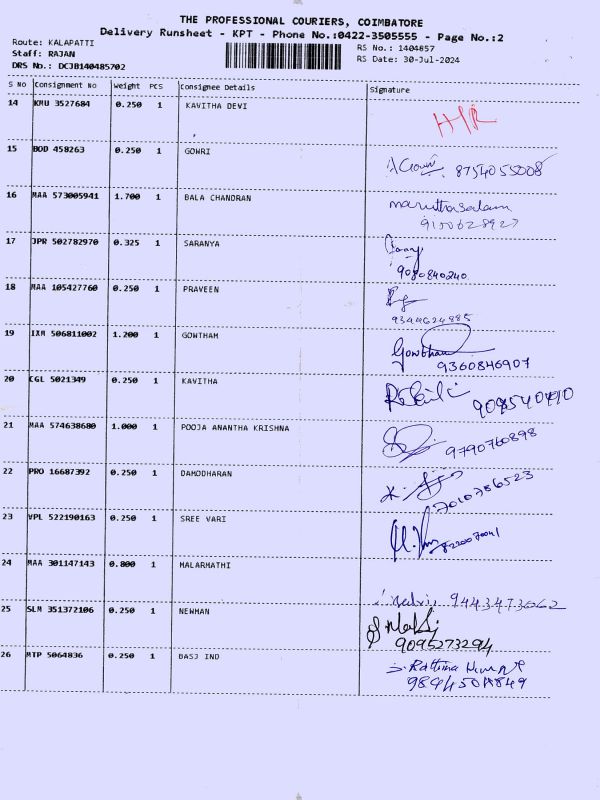 THE PROFESSIONAL COURIERS, COIMBATORE
Delivery Runsheet - KPT - Phone No.:0422-3505555 - Page No.:2
Route: KALAPATTI
Staff: RAJAN
DRS No.: DCJB140485702
RS No.: 1404857
RS Date: 30-Jul-2024
S No Consignment No Weight PCS Consignee Details Signature
14 KMU 3527684 0.250 1 KAVITHA DEVI
15 BOD 458263 0.250 1 GOWRI 8754055008
16 MAA 573005941 1.700 1 BALA CHANDRAN maruthasalam
9150628927
17 JPR 502782970 0.325 1 SARANYA
9080840240
18 MAA 105427760 0.250 1 PRAVEEN
9344624885
19 IXM 506811002 1.200 1 GOWTHAM Gowtham
9360846907
20 CGL 5021349 0.250 1 KAVITHA
21 MAA 574638680 1.000 1 POOJA ANANTHA KRISHNA 9790760898
22 PRO 16687392 0.250 1 DAMODHARAN 7010786523
23 VPL 522190163 0.250 1 SREE VARI
24 MAA 301147143 0.800 1 MALARMATHI
9443473062
25 SLM 351372106 0.250 1 NEWMAN
9095273294
26 MTP 5064836 0.250 1 BASJ IND